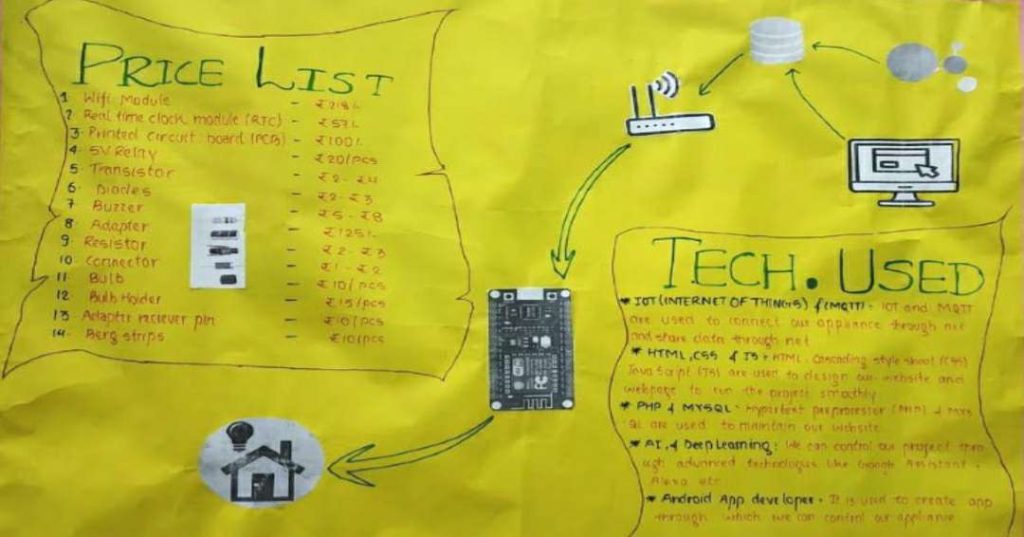 PRICE LIST
1 Wifi Module -
2 Real time clock module (RTC) - ₹57/-
3. Printed circuit board (PCB) - ₹100/-
4 5V Relay - ₹20/pcs
5. Transistor - ₹2 - ₹4
6. Diodes - ₹2 - ₹3
7 Buzzer - ₹5 - ₹8
8 Adapter - ₹125/-
9. Resistor - ₹2 - ₹3
10 Connector - ₹1 - ₹2
11 Bulb - ₹10/pcs
12 Bulb Holder - ₹15/pcs
13 Adapter reciever pin - ₹10/pcs
14. Berg strips - ₹10/pcs
TECH. USED
* IOT (INTERNET OF THINGS) & (MQTT) : IOT and MQTT
are used to connect our appliance through net
and share data through net
* HTML, CSS & JS : HTML, Cascading style sheet (CSS)
Java Script (JS) are used to design our website and
webpage to run the project smoothly
* PHP & MYSQL : Hypertext preprocessor (PHP) & MYS
QL are used to maintain our website
* AI, & Deep Learning : We can control our project thro
ugh advanced technologies like Google Assistant,
Alexa etc
* Android App developer : It is used to create app
through which we can control our appliance